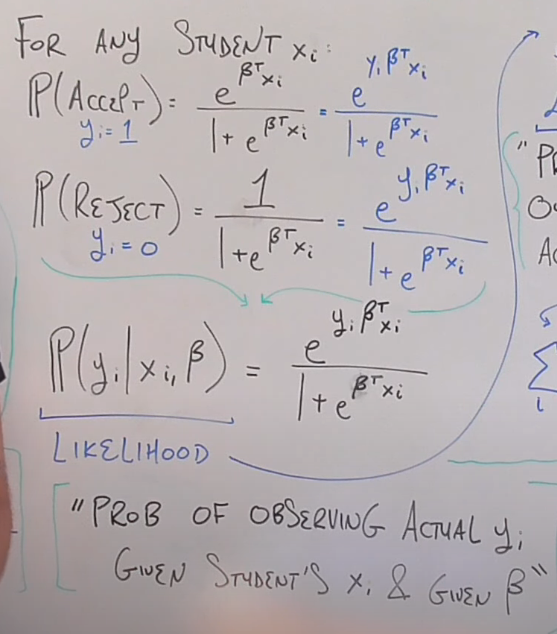 FOR ANY STUDENT xᵢ:
ℙ(ACCEPT) = e^(βᵀxᵢ) / (1 + e^(βᵀxᵢ)) = e^(yᵢβᵀxᵢ) / (1 + e^(βᵀxᵢ))
yᵢ = 1
ℙ(REJECT) = 1 / (1 + e^(βᵀxᵢ)) = e^(yᵢβᵀxᵢ) / (1 + e^(βᵀxᵢ))
yᵢ = 0
ℙ(yᵢ | xᵢ, β) = e^(yᵢβᵀxᵢ) / (1 + e^(βᵀxᵢ))
LIKELIHOOD
"PROB OF OBSERVING ACTUAL yᵢ
GIVEN STUDENT'S xᵢ & GIVEN β"
Σ
i